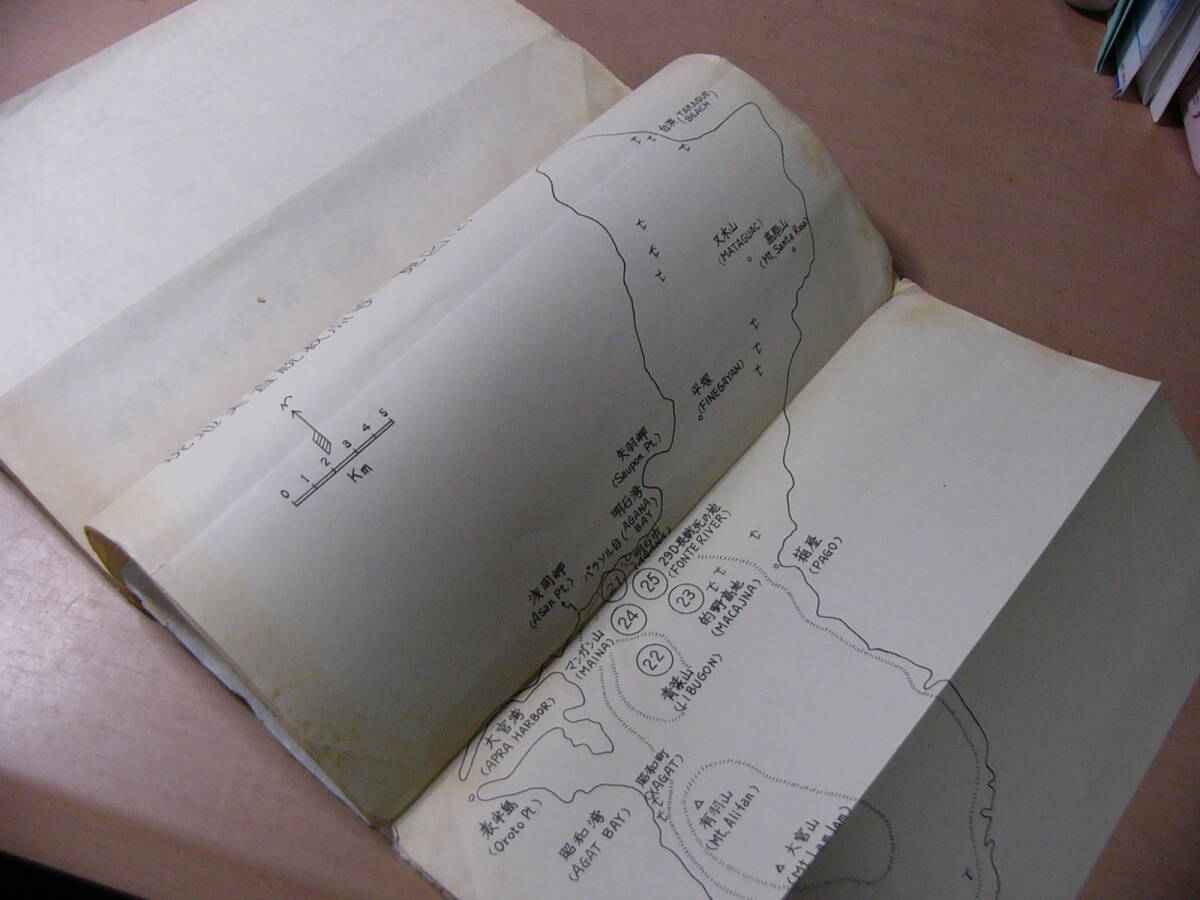 白浜 (TARAGUE BEACH)
又木山
(MATAGUAC)
高原山
(Mt. Santa Rosa)
平塚
(FINEGAYAN)
N
0 1 2 3 4 5
Km
矢羽岬
(Saupon Pt.)
明石湾
(AGANA BAY)
パラソル台
浅間岬
(Asan Pt.)
29D長戦死の地
(FONTE RIVER)
箱屋
(PAGO)
21
25
24
23
的野高地
(MACAJNA)
22
マンガン山
(MAINA)
青葉山
(LIBUGON)
大宮湾
(APRA HARBOR)
表半島
(Oroto Pt.)
昭和町
(AGAT)
昭和湾
(AGAT BAY)
有羽山
(Mt. Alifan)
大宮山
(Mt Lam Lam)